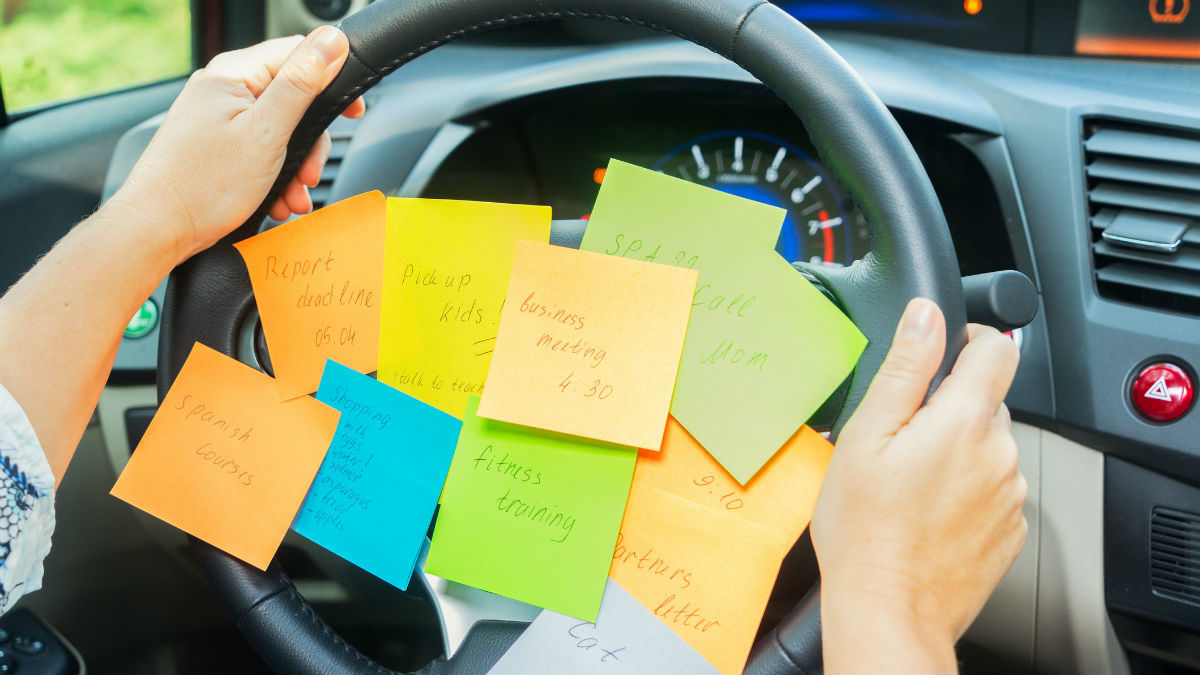 Report
deadline
05.04
Pick up
kids!
!talk to
SPA
Call
Mom
business
meeting
4.30
Spanish
courses
Shopping
milk
eggs
water!
salmon
asparagus
- bread
- apples
fitness
training
9.10
Partners
letter
Cat